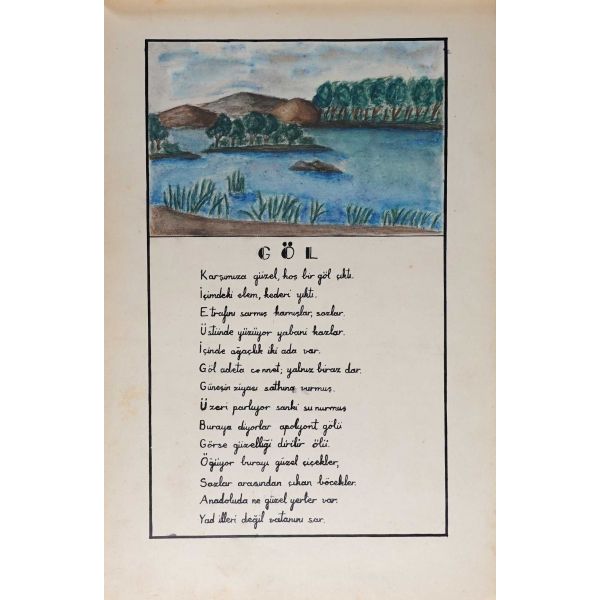 GÖL
Karşımıza güzel, hoş bir göl çıktı.
İçimdeki elem, kederi yıktı.
Etrafını sarmış kamışlar, sazlar.
Üstünde yüzüyor yabani kazlar.
İçinde ağaçlık iki ada var.
Göl adeta cennet; yalnız biraz dar.
Güneşin ziyası sathına vurmuş.
Üzeri parlıyor sanki su nurmuş
Buraya diyorlar apolyont gölü
Görse güzelliği dirilir ölü.
Öğüyor burayı güzel çiçekler,
Sazlar arasından çıkan böcekler.
Anadoluda ne güzel yerler var.
Yad illeri değil vatanını sar.